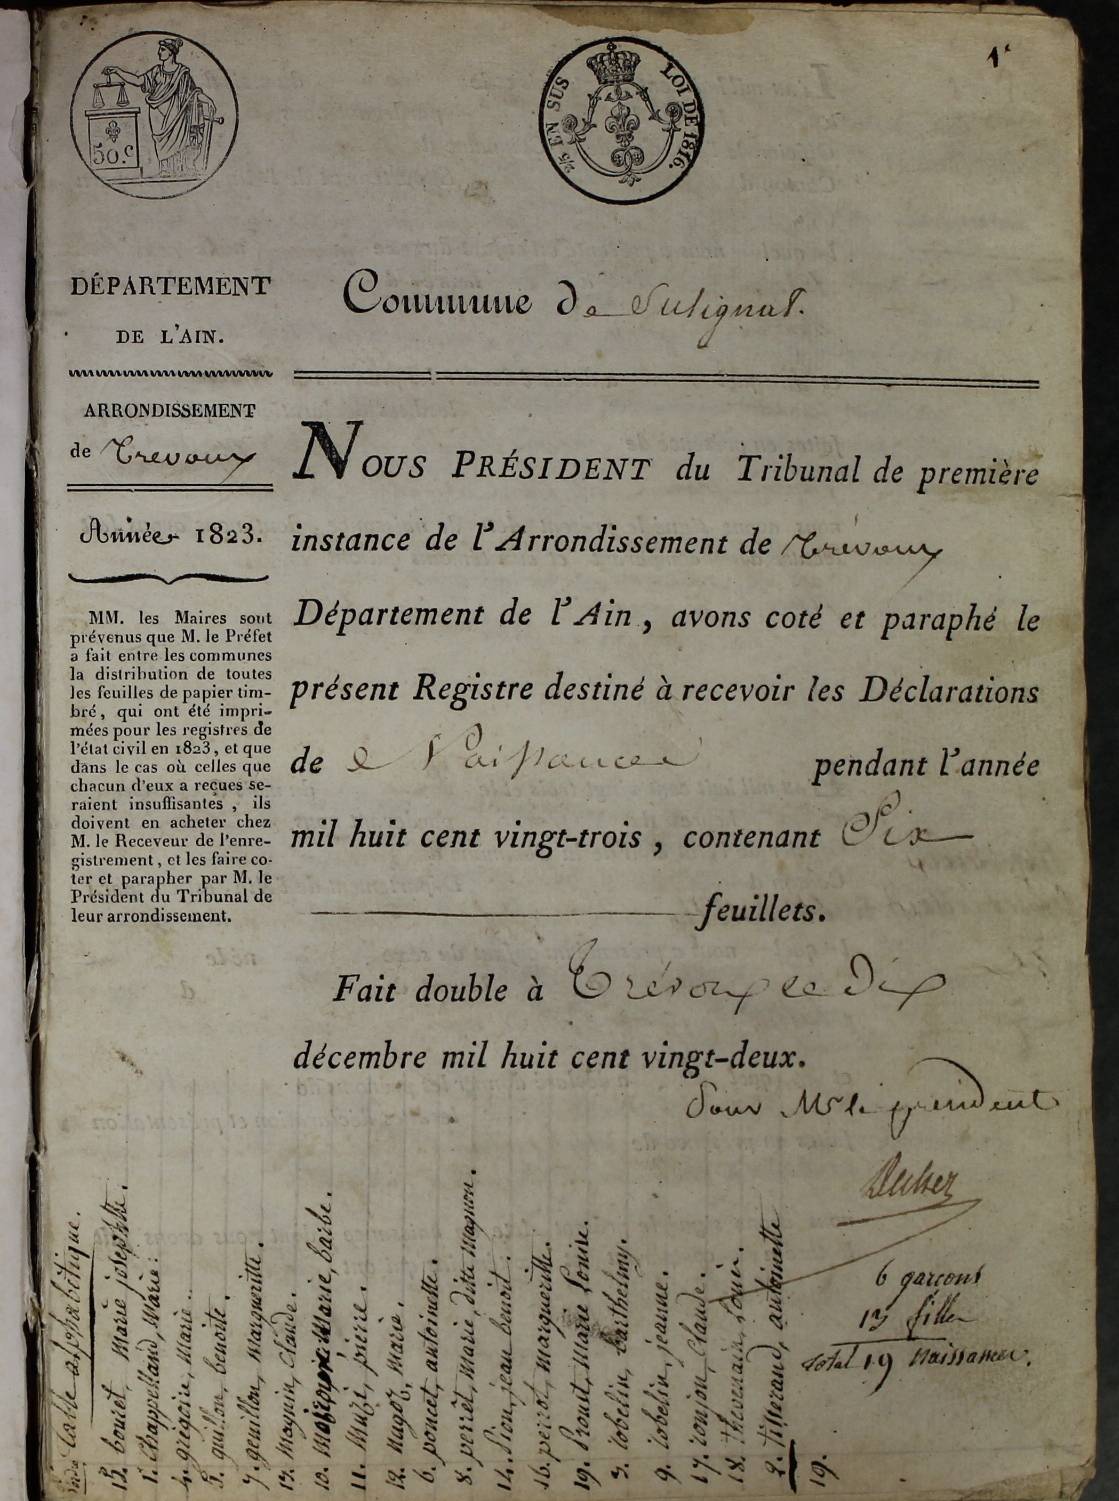 1
50.c
2/5 EN SUS LOI DE 1816.
DÉPARTEMENT
DE L'AIN.
ARRONDISSEMENT
de Trevoux
Année 1823.
MM. les Maires sont
prévenus que M. le Préfet
a fait entre les communes
la distribution de toutes
les feuilles de papier tim-
bré, qui ont été impri-
mées pour les registres de
l'état civil en 1823, et que
dans le cas où celles que
chacun d'eux a reçues se-
raient insuffisantes, ils
doivent en acheter chez
M. le Receveur de l'enre-
gistrement, et les faire co-
ter et parapher par M. le
Président du Tribunal de
leur arrondissement.
Commune de Sulignat.
NOUS PRÉSIDENT du Tribunal de première
instance de l'Arrondissement de Trévoux
Département de l'Ain, avons coté et paraphé le
présent Registre destiné à recevoir les Déclarations
de Naissance pendant l'année
mil huit cent vingt-trois, contenant Six
feuillets.
Fait double à Trévoux le Dix
décembre mil huit cent vingt-deux.
Pour Mr le president
6 garçons
13 filles
total 19 Naissances.
Table alphabétique.
15. bouret, Marie josephte.
1. Chappelland, Marie.
4. grégoire, Marie.
5. guillon, benoite.
7. genillon, margueritte.
13. Magnin, Claude.
10. Marie, barbe.
11. Muzi, pierre.
12. Nugoz, marie.
6. poncet, antoinette.
8. perret, marie, dite Magnon.
14. Pion, jean benoit.
16. perrot, margueritte.
19. Proust, Marie Louise.
3. robelin, barthelmy.
9. robelin, jeanne.
17. ronjon, Claude.
18. thevenain, Louis.
2. tisserand, antoinette
19.